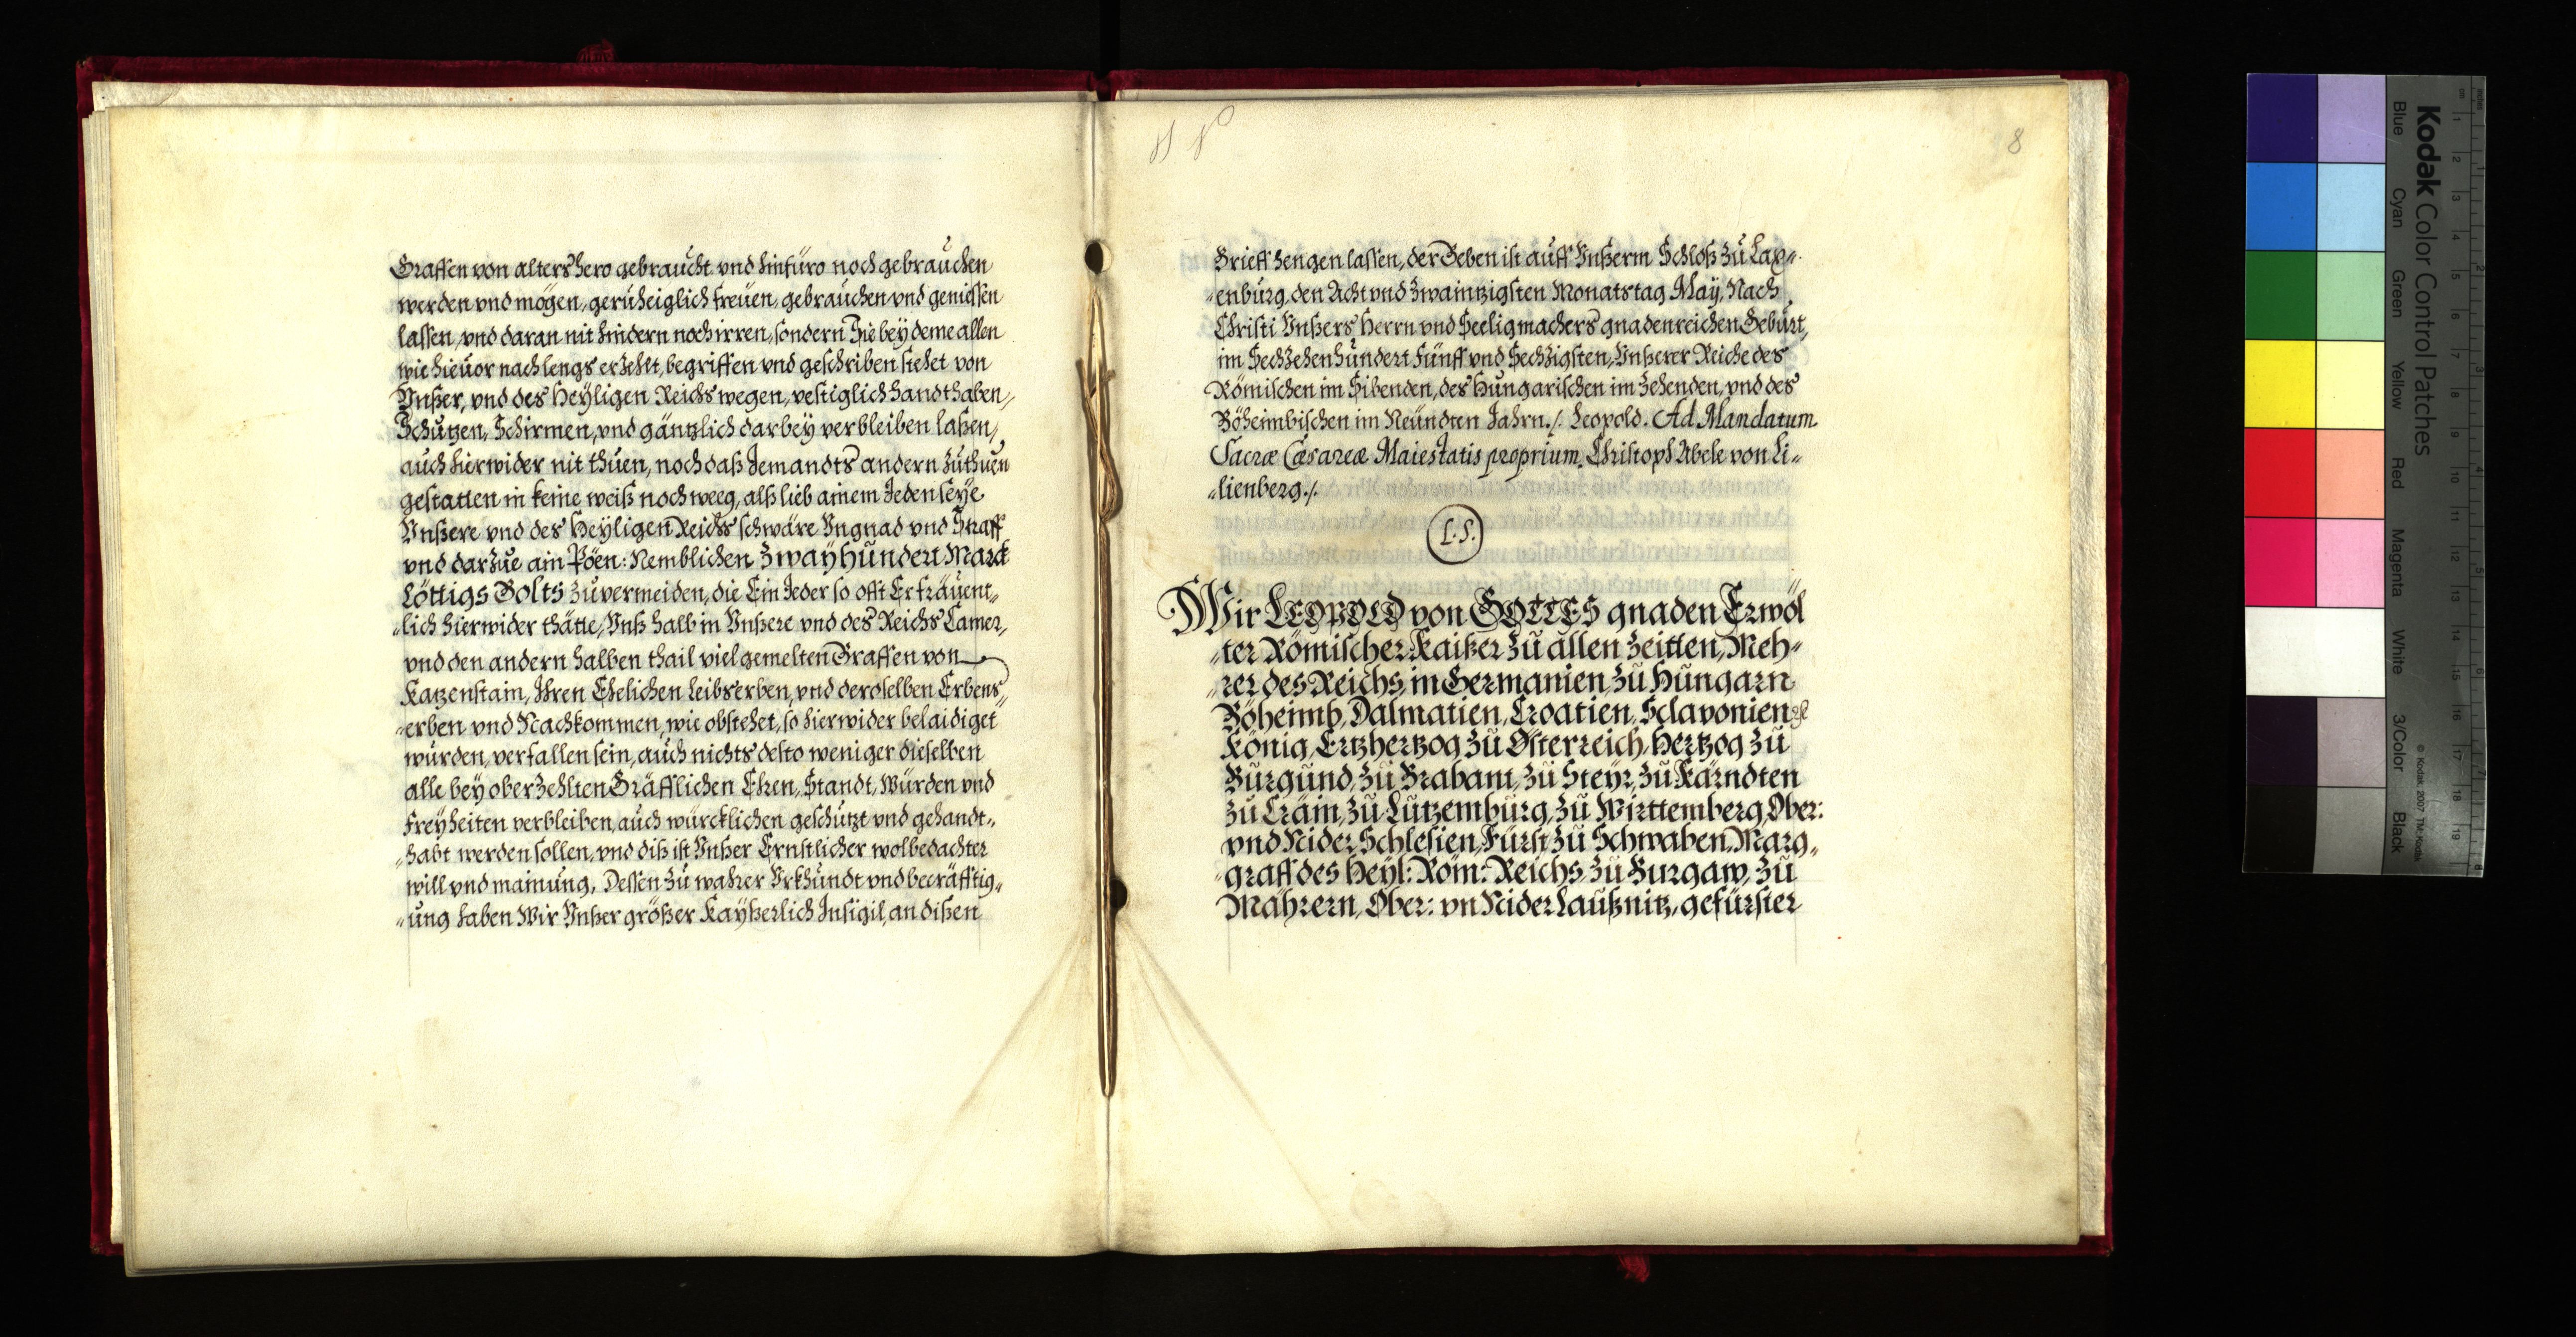 Graffen von alters hero gebraucht vnd hinfüro noch gebrauchen
werden vnd mögen, gerüheiglich freüen, gebrauchen vnd geniessen
lassen, vnd daran nit hindern noch irren, sondern Sie bey deme allen
wie hieuor nach lengs erzehlt, begriffen vnd geschriben stehet von
Vnßer, vnd des Heyligen Reichs wegen, vestiglich handthaben,
Schützen, Schirmen, vnd gäntzlich darbey verbleiben laßen,
auch hierwider nit thuen, noch daß Jemandts andern zuthuen
gestatten in keine weiß noch weeg, alß lieb ainem Jeden seye
Vnßere vnd des Heyligen Reichs schwäre Vngnad vnd Straff
vnd darzue ain Pöen: Nemblichen Zwayhundert Marck
Löttigs Golts zuvermeiden, die Ein Jeder so offt Er fräuent„
„lich hierwider thätte, Vnß halb in Vnßere vnd des Reichs Camer,
vnd den andern halben thail vielgemelten Graffen von
Katzenstain, Ihren Ehelichen Leibs erben, vnd deroselben Erbens„
„erben vnd Nachkommen, wie obstehet, so hierwider belaidiget
wurden, verfallen sein, auch nichts desto weniger dieselben
alle bey oberzehlten Gräfflichen Ehren, Standt, Würden vnd
Freyheiten verbleiben, auch würcklichen geschützt vnd gehandt„
„habt werden sollen, vnd diß ist Vnßer Ernstlicher wolbedachter
will vnd mainung. Dessen zu wahrer Vrkhundt vnd becräfftig„
„ung haben Wir Vnßer größer Kayßerlich Insigil, an dißen
8
Brieff hengen lassen, der Geben ist auff Vnßerm Schloß zu Lax„
„enburg, den Acht vnd Zwaintzigsten Monatstag May, Nach
Christi Vnßers Herrn vnd Seeligmachers gnadenreichen Geburt,
im Sechzehenhundert Fünff vnd Sechzigsten, Vnßerer Reiche des
Römischen im Sibenden, des Hungarischen im Zehenden, vnd des
Böheimbischen im Neündten Jahrn./. Leopold. Ad Mandatum
Sacræ Cæsareæ Maiestatis proprium. Christoph Abele von Li„
„lienberg./.
L.S.
Wir LEOPOLD von GOTTES gnaden Erwöl
„ter Römischer Kaißer zu allen Zeitten, Meh„
„rer des Reichs, in Germanien, zu Hungarn
Böheimb, Dalmatien, Croatien, Sclavonien
König, Ertzhertzog zu Österreich, Hertzog zu
Burgund, zu Brabant, zu Steyr, zu Kärndten
zu Crain, zu Lützemburg, zu Wirttemberg, Ober:
vnd Nider Schlesien, Fürst zu Schwaben, Marg„
„graff des Heyl: Röm: Reichs, zu Burgaw, zu
Mährern, Ober: vn Nider Laußnitz, gefürster
Kodak Color Control Patches
Blue
Cyan
Green
Yellow
Red
Magenta
White
3/Color
Black
© Kodak, 2007 TM: Kodak